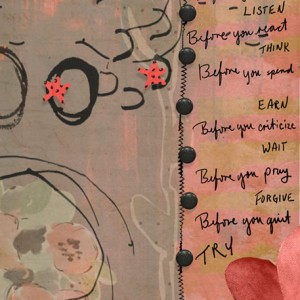 LISTEN
Before you react
THINK
Before you spend
EARN
Before you criticize
WAIT
Before you pray
FORGIVE
Before you quit
TRY